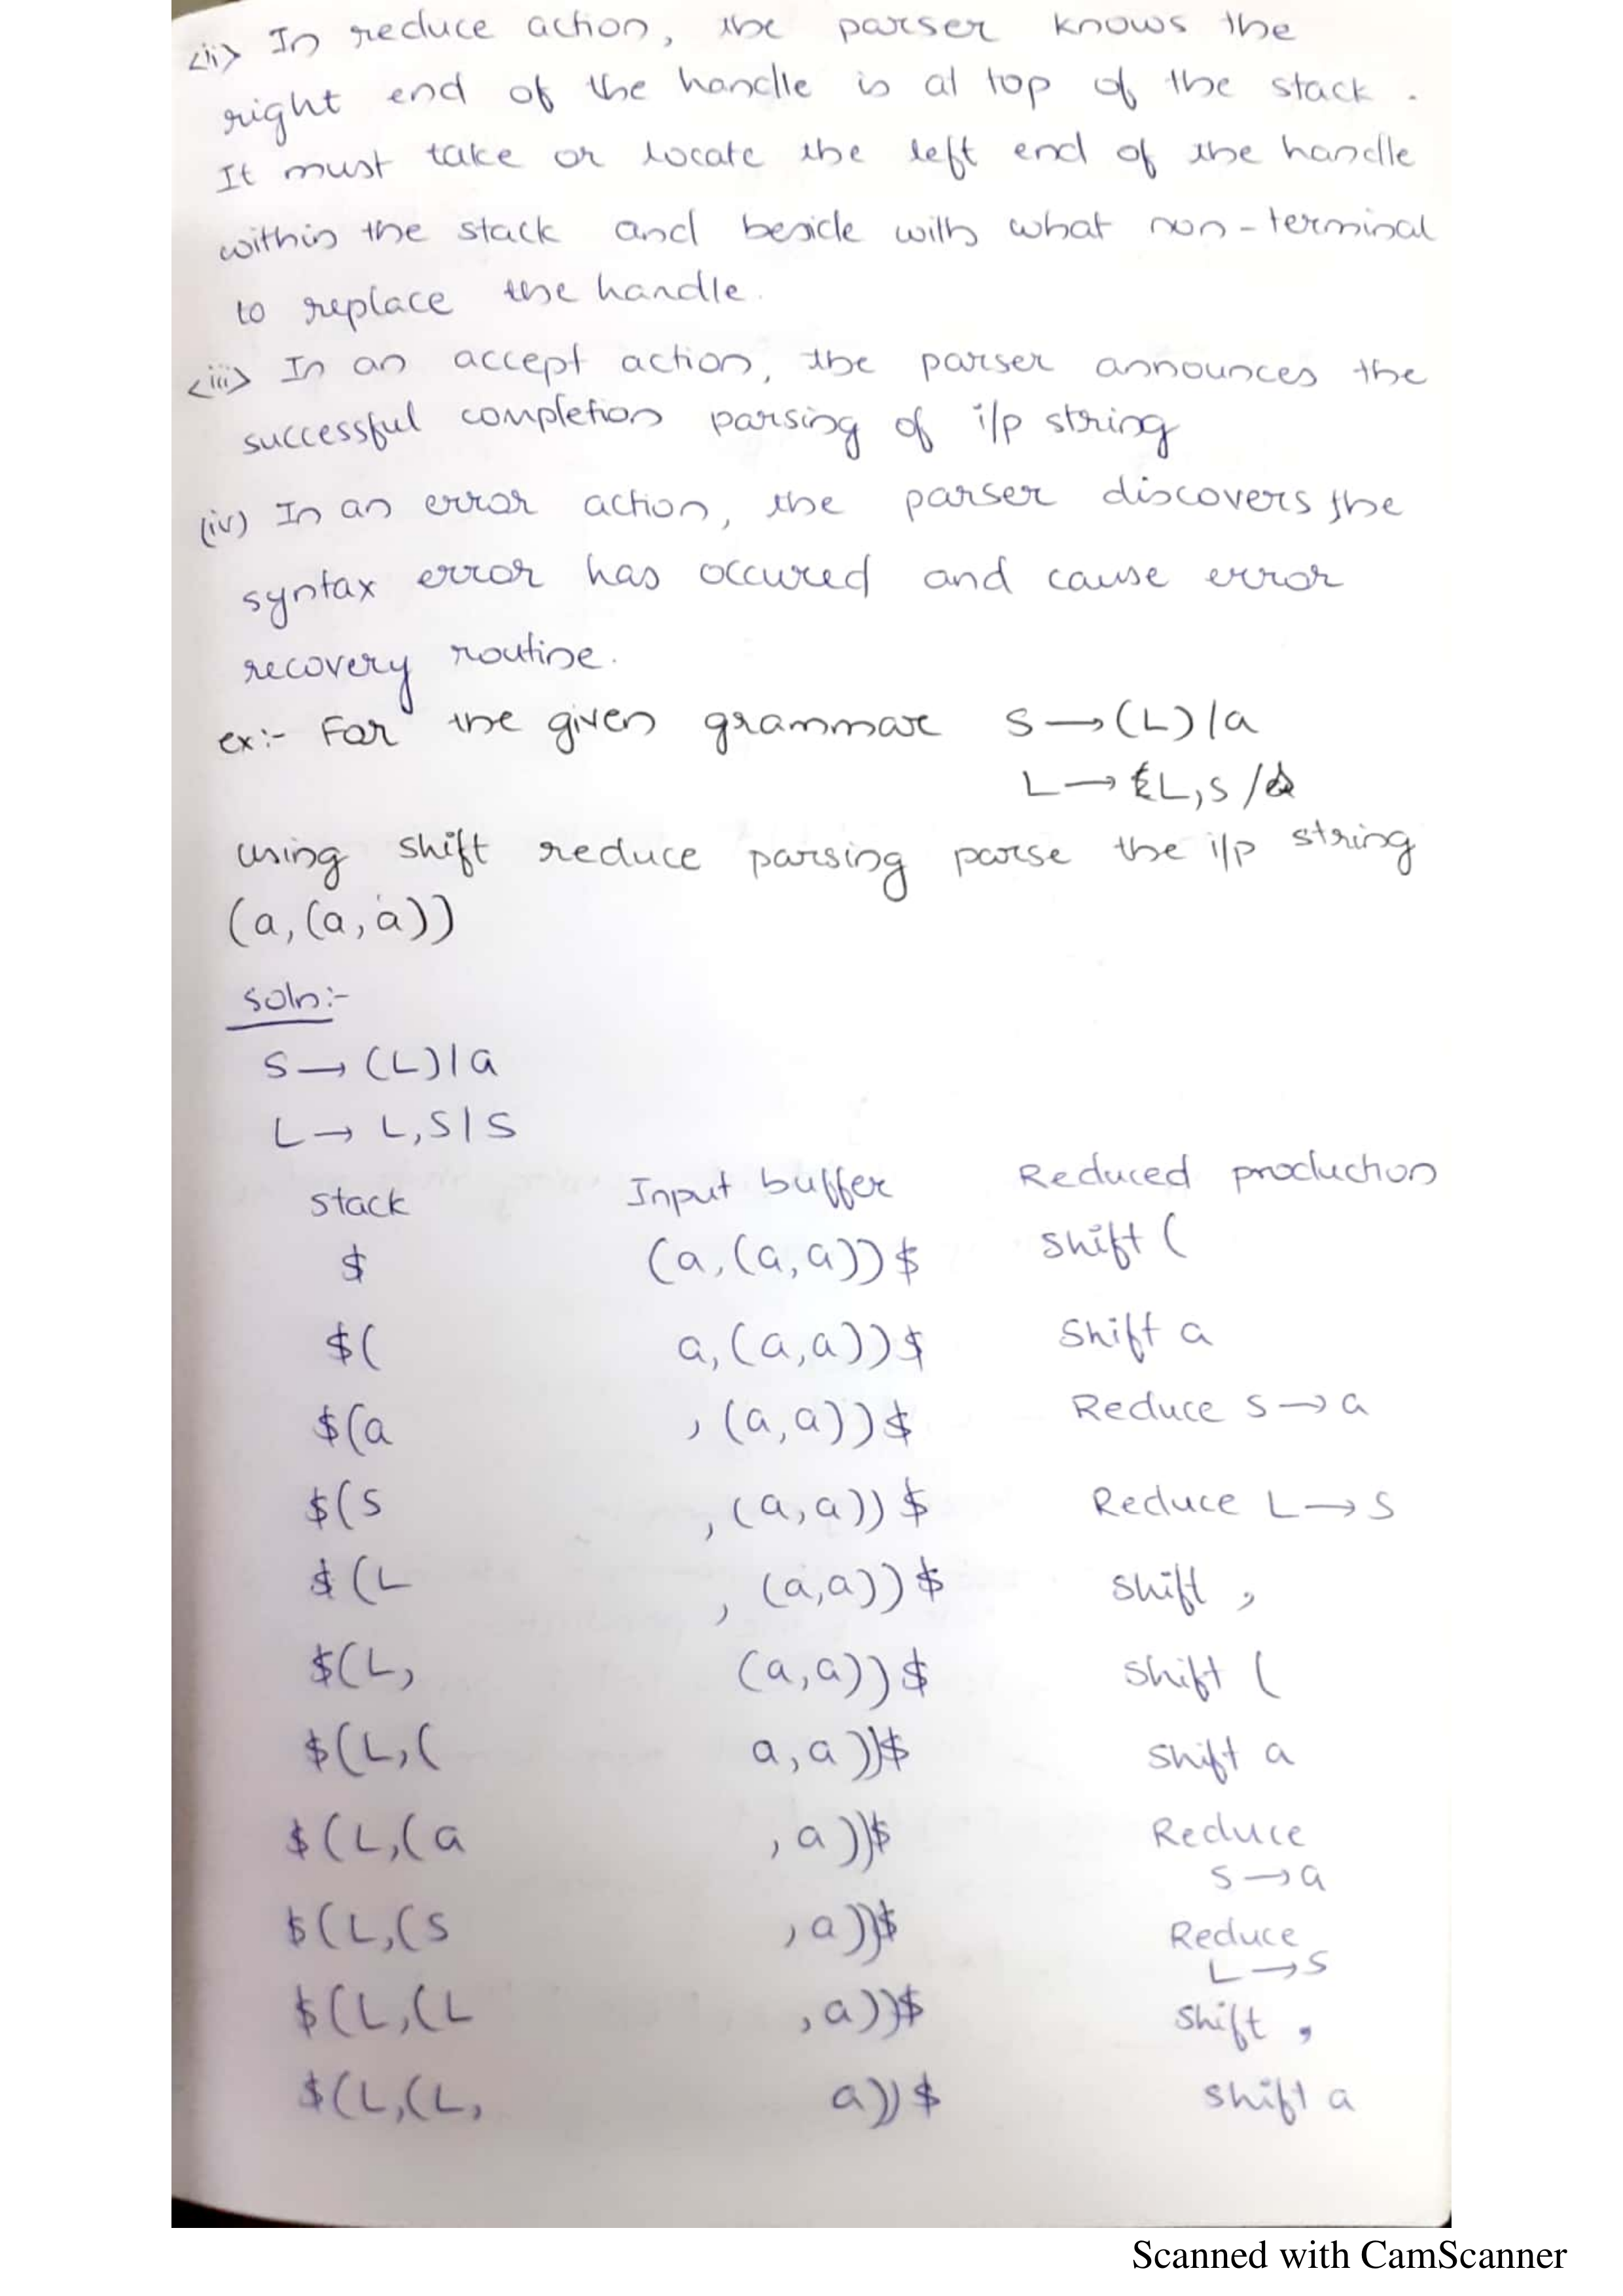 <ii> In reduce action, the parser knows the
right end of the handle is at top of the stack.
It must take or locate the left end of the handle
within the stack and beside with what non-terminal
to replace the handle.
<iii> In an accept action, the parser announces the
successful completion parsing of i/p string
(iv) In an error action, the parser discovers the
syntax error has occured and cause error
recovery routine.
ex:- For the given grammar S → (L) | a
L → L,S /
using shift reduce parsing parse the i/p string
(a,(a,a))
Soln:-
S → (L) | a
L → L,S | S
Stack Input buffer Reduced production
$ (a,(a,a))$ shift (
$( a,(a,a))$ Shift a
$(a ,(a,a))$ Reduce S → a
$(S ,(a,a))$ Reduce L → S
$(L ,(a,a))$ shift ,
$(L, (a,a))$ shift (
$(L,( a,a))$ shift a
$(L,(a ,a))$ Reduce
S → a
$(L,(S ,a))$ Reduce
L → S
$(L,(L ,a))$ Shift ,
$(L,(L, a))$ shift a
Scanned with CamScanner